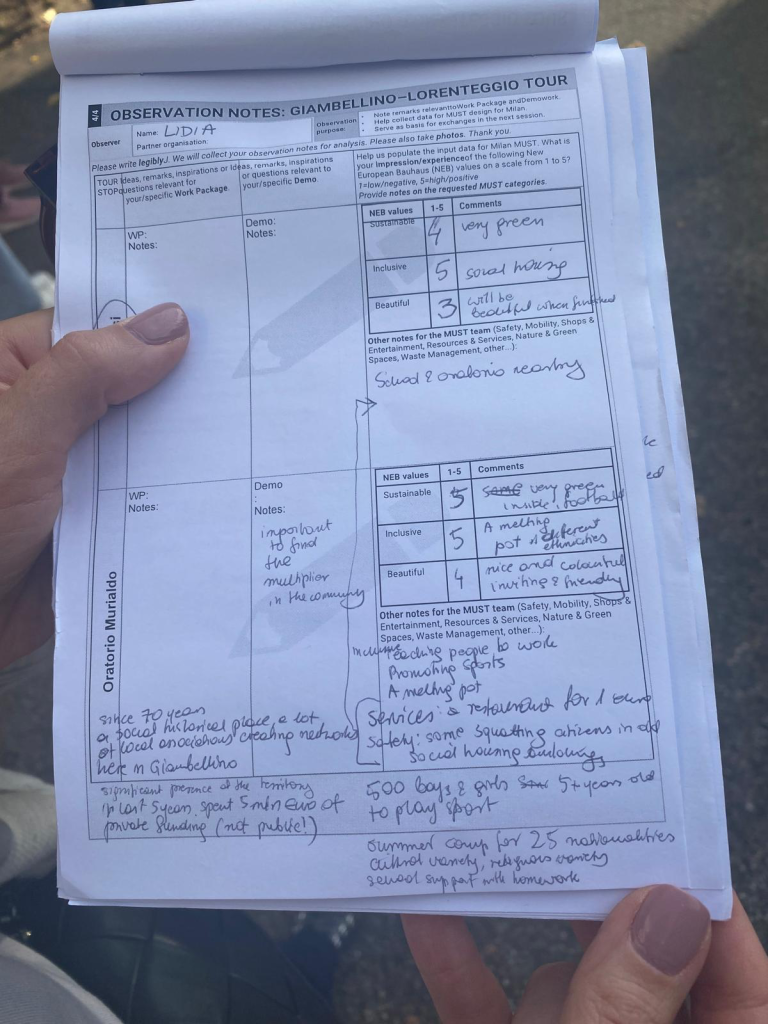 4/4
OBSERVATION NOTES: GIAMBELLINO–LORENTEGGIO TOUR
Observer
Name: LIDIA
Partner organisation:
Observation purpose:
• Note remarks relevanttoWork Package andDemowork.
• Help collect data for MUST design for Milan.
• Serve as basis for exchanges in the next session.
Please write legibly!. We will collect your observation notes for analysis. Please also take photos. Thank you.
TOUR STOP
Ideas, remarks, inspirations or
questions relevant for
your/specific Work Package.
Ideas, remarks, inspirations
or questions relevant to
your/specific Demo.
Help us populate the input data for Milan MUST. What is
your impression/experienceof the following New
European Bauhaus (NEB) values on a scale from 1 to 5?
1=low/negative, 5=high/positive
Provide notes on the requested MUST categories.
WP:
Notes:
Demo:
Notes:
NEB values 1-5 Comments
Sustainable 4 very green
Inclusive 5 social housing
Beautiful 3 will be
beautiful when finished
Other notes for the MUST team (Safety, Mobility, Shops &
Entertainment, Resources & Services, Nature & Green
Spaces, Waste Management, other...):
School & oratorio nearby
Oratorio Murialdo
WP:
Notes:
Demo
:
Notes:
important
to find
the
multiplier
in the community
NEB values 1-5 Comments
Sustainable 5 some very green
inside, football
Inclusive 5 A melting
pot of different
ethnicities
Beautiful 4 nice and colourful
inviting & friendly
Other notes for the MUST team (Safety, Mobility, Shops &
Entertainment, Resources & Services, Nature & Green
Spaces, Waste Management, other...):
Teaching people to work
Promoting sports
A melting pot
Services: restaurant for 1 euro
Safety: some squatting citizens in old
social housing buildings
since 70 years
a social historical place, a lot
of local associations creating networks
here in Giambellino
significant presence of the territory
in last 5 years, spent 5 mln euro of
private funding (not public!)
500 boys & girls 5+ years old
to play sport
summer camp for 25 nationalities
cultural variety, religious variety
school support with homework